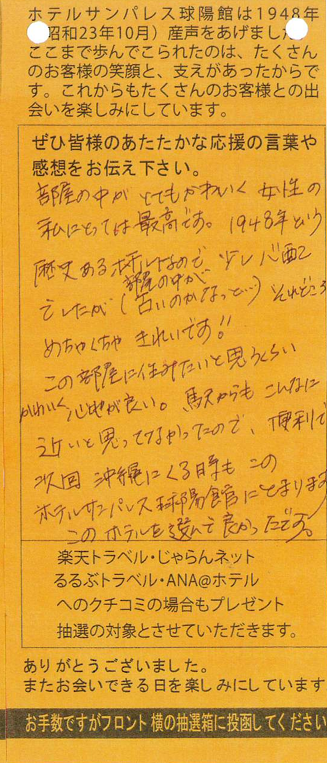 ホテルサンパレス球陽館は1948年
昭和23年10月）産声をあげました
ここまで歩んでこられたのは、たくさん
のお客様の笑顔と、支えがあったからで
す。これからもたくさんのお客様との出
会いを楽しみにしています。
ぜひ皆様のあたたかな応援の言葉や
感想をお伝え下さい。
部屋の中が とてもかわいく 女性の
私にとっては最高です。1948年という
歴史あるホテルなので 少し心配
でしたが（部屋の中が古いのかなっと…）それどころ
めちゃくちゃ きれいです!!
この部屋に住みたいと思うくらい
かわいく心地が良い。駅からもこんなに
近いと思ってなかったので、便利で
次回 沖縄にくる時も この
ホテルサンパレス球陽館にとまります
このホテルを選んで良かったです。
楽天トラベル・じゃらんネット
るるぶトラベル・ANA@ホテル
へのクチコミの場合もプレゼント
抽選の対象とさせていただきます。
ありがとうございました。
またお会いできる日を楽しみにしています
お手数ですがフロント横の抽選箱に投函してください